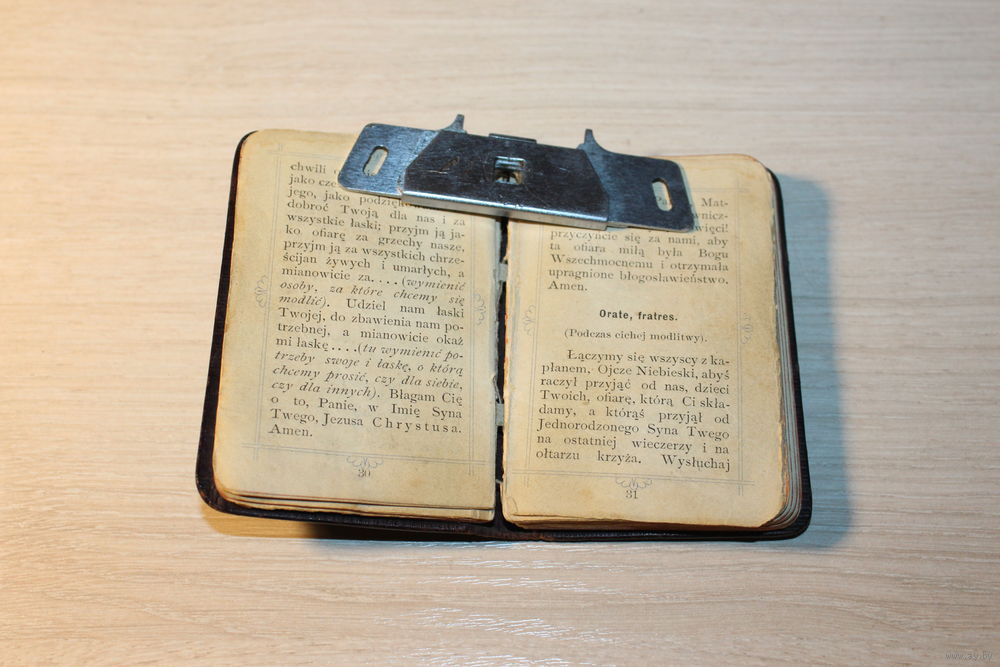 chwili
jako
jego, jako
dobroć Twoją dla nas i za
wszystkie łaski; przyjm ją ja-
ko ofiarę za grzechy nasze,
przyjm ją za wszystkich chrze-
ścijan żywych i umarłych, a
mianowicie za.... (wymienić
osoby, za które chcemy się
modlić). Udziel nam łaski
Twojej, do zbawienia nam po-
trzebnej, a mianowicie okaż
mi łaskę....(tu wymienić po-
trzeby swoje i łaskę, o którą
chcemy prosić, czy dla siebie,
czy dla innych). Błagam Cię
o to, Panie, w Imię Syna
Twego, Jezusa Chrystusa.
Amen.
30
Mat-
przyczyńcie się za nami, aby
ta ofiara miłą była Bogu
Wszechmocnemu i otrzymała
upragnione błogosławieństwo.
Amen.
Orate, fratres.
(Podczas cichej modlitwy).
Łączymy się wszyscy z ka-
płanem, Ojcze Niebieski, abyś
raczył przyjąć od nas, dzieci
Twoich, ofiarę, którą Ci skła-
damy, a którąś przyjął od
Jednorodzonego Syna Twego
na ostatniej wieczerzy i na
ołtarzu krzyża. Wysłuchaj
31
www.ay.by